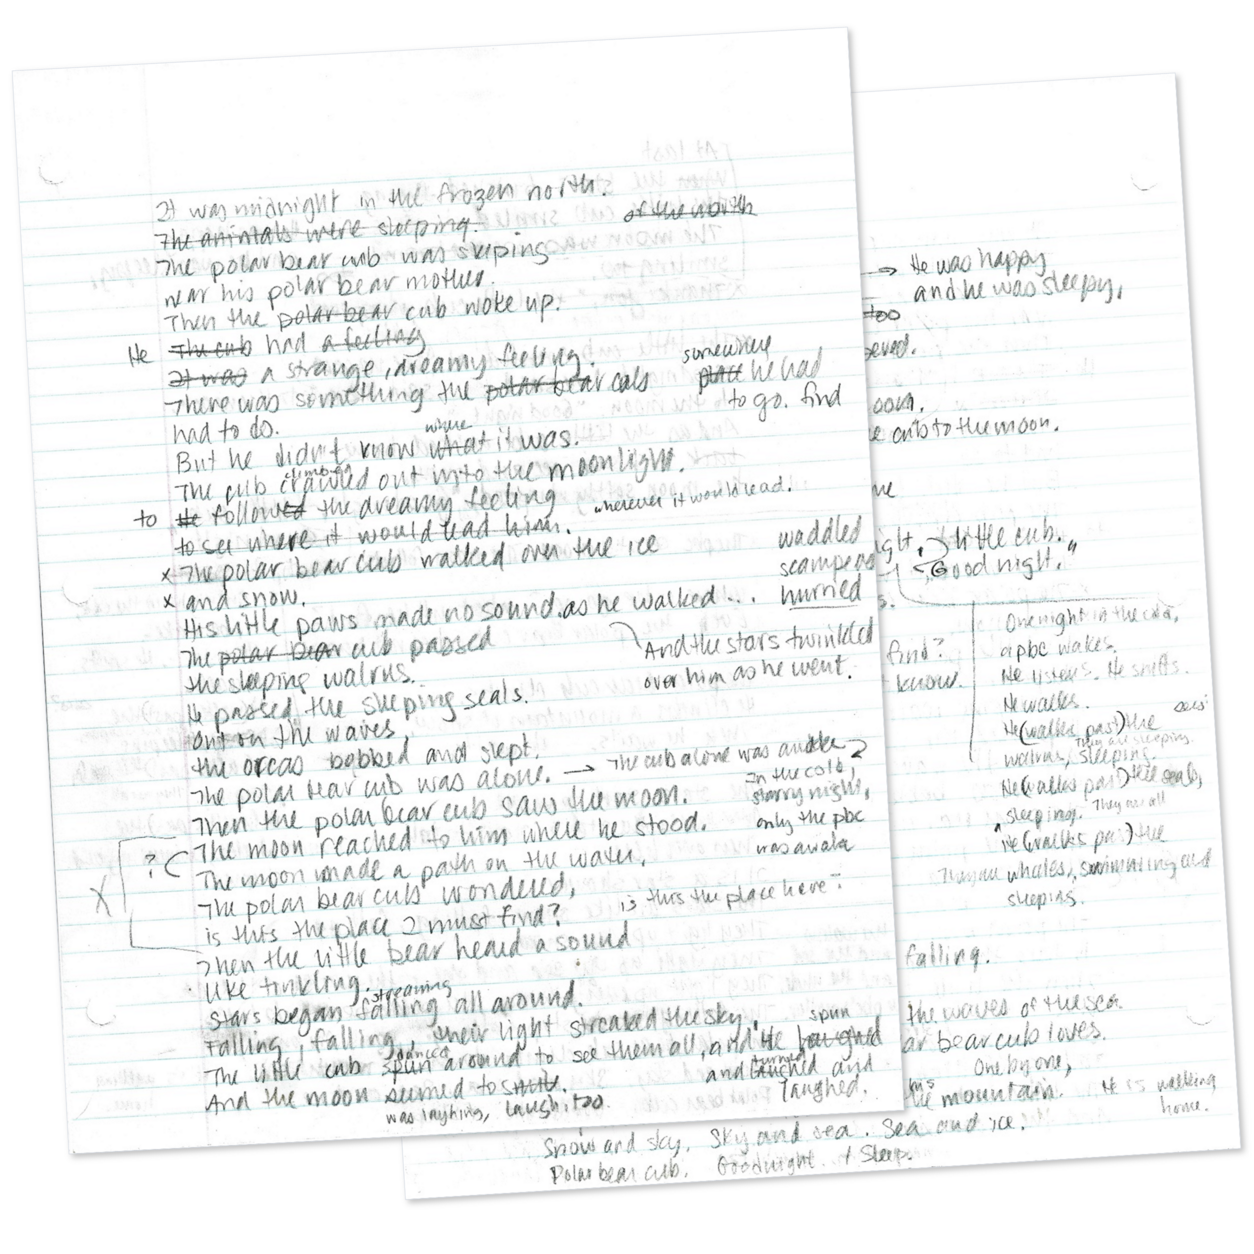 It was midnight in the frozen north.
The animals were sleeping. of the north
The polar bear cub was sleeping
near his polar bear mother.
Then the polar bear cub woke up.
He The cub had a feeling
It was a strange, dreamy feeling.
There was something the polar bear cub somewhere place he had
had to do. to go. find
But he didn't know what where it was.
The cub crawled climbed out into the moonlight.
to He followed the dreamy feeling wherever it would lead.
to see where it would lead him.
x The polar bear cub walked over the ice waddled
x and snow. scampered
His little paws made no sound. as he walked... hurried
The polar bear cub passed And the stars twinkled
the sleeping walrus. over him as he went.
He passed the sleeping seals.
Out on the waves,
the orcas bobbed and slept.
The polar bear cub was alone. → The cub alone was awake
Then the polar bear cub saw the moon. In the cold,
starry night,
The moon reached to him where he stood. only the pbc
was awake
? The moon made a path on the water.
X The polar bear cub wondered,
is this the place I must find? is this the place here?
Then the little bear heard a sound
like tinkling.
Stars began falling streaming all around.
Falling, falling, their light streaked the sky.
The little cub spun danced around to see them all, and He laughed spun
And the moon seemed to smile. and turned launched and
was laughing, laugh, too. laughed.
→ He was happy
and he was sleepy,
too
oom.
e cub to the moon.
me
ight, little cub.
Good night."
One night in the cold,
a pbc wakes.
find? He listens. He sniffs.
know. He walks.
He (walks past) the
walrus, sleeping. They are sleeping.
He (walks past) the seals,
sleeping. They are all
He (walks past) the
They are whales, swimming and
sleeping.
falling.
the waves of the sea.
ar bear cub loves.
One by one,
the mountain. He is walking
home.
Snow and sky. Sky and sea. Sea and ice.
Polar bear cub. Goodnight. Sleep.